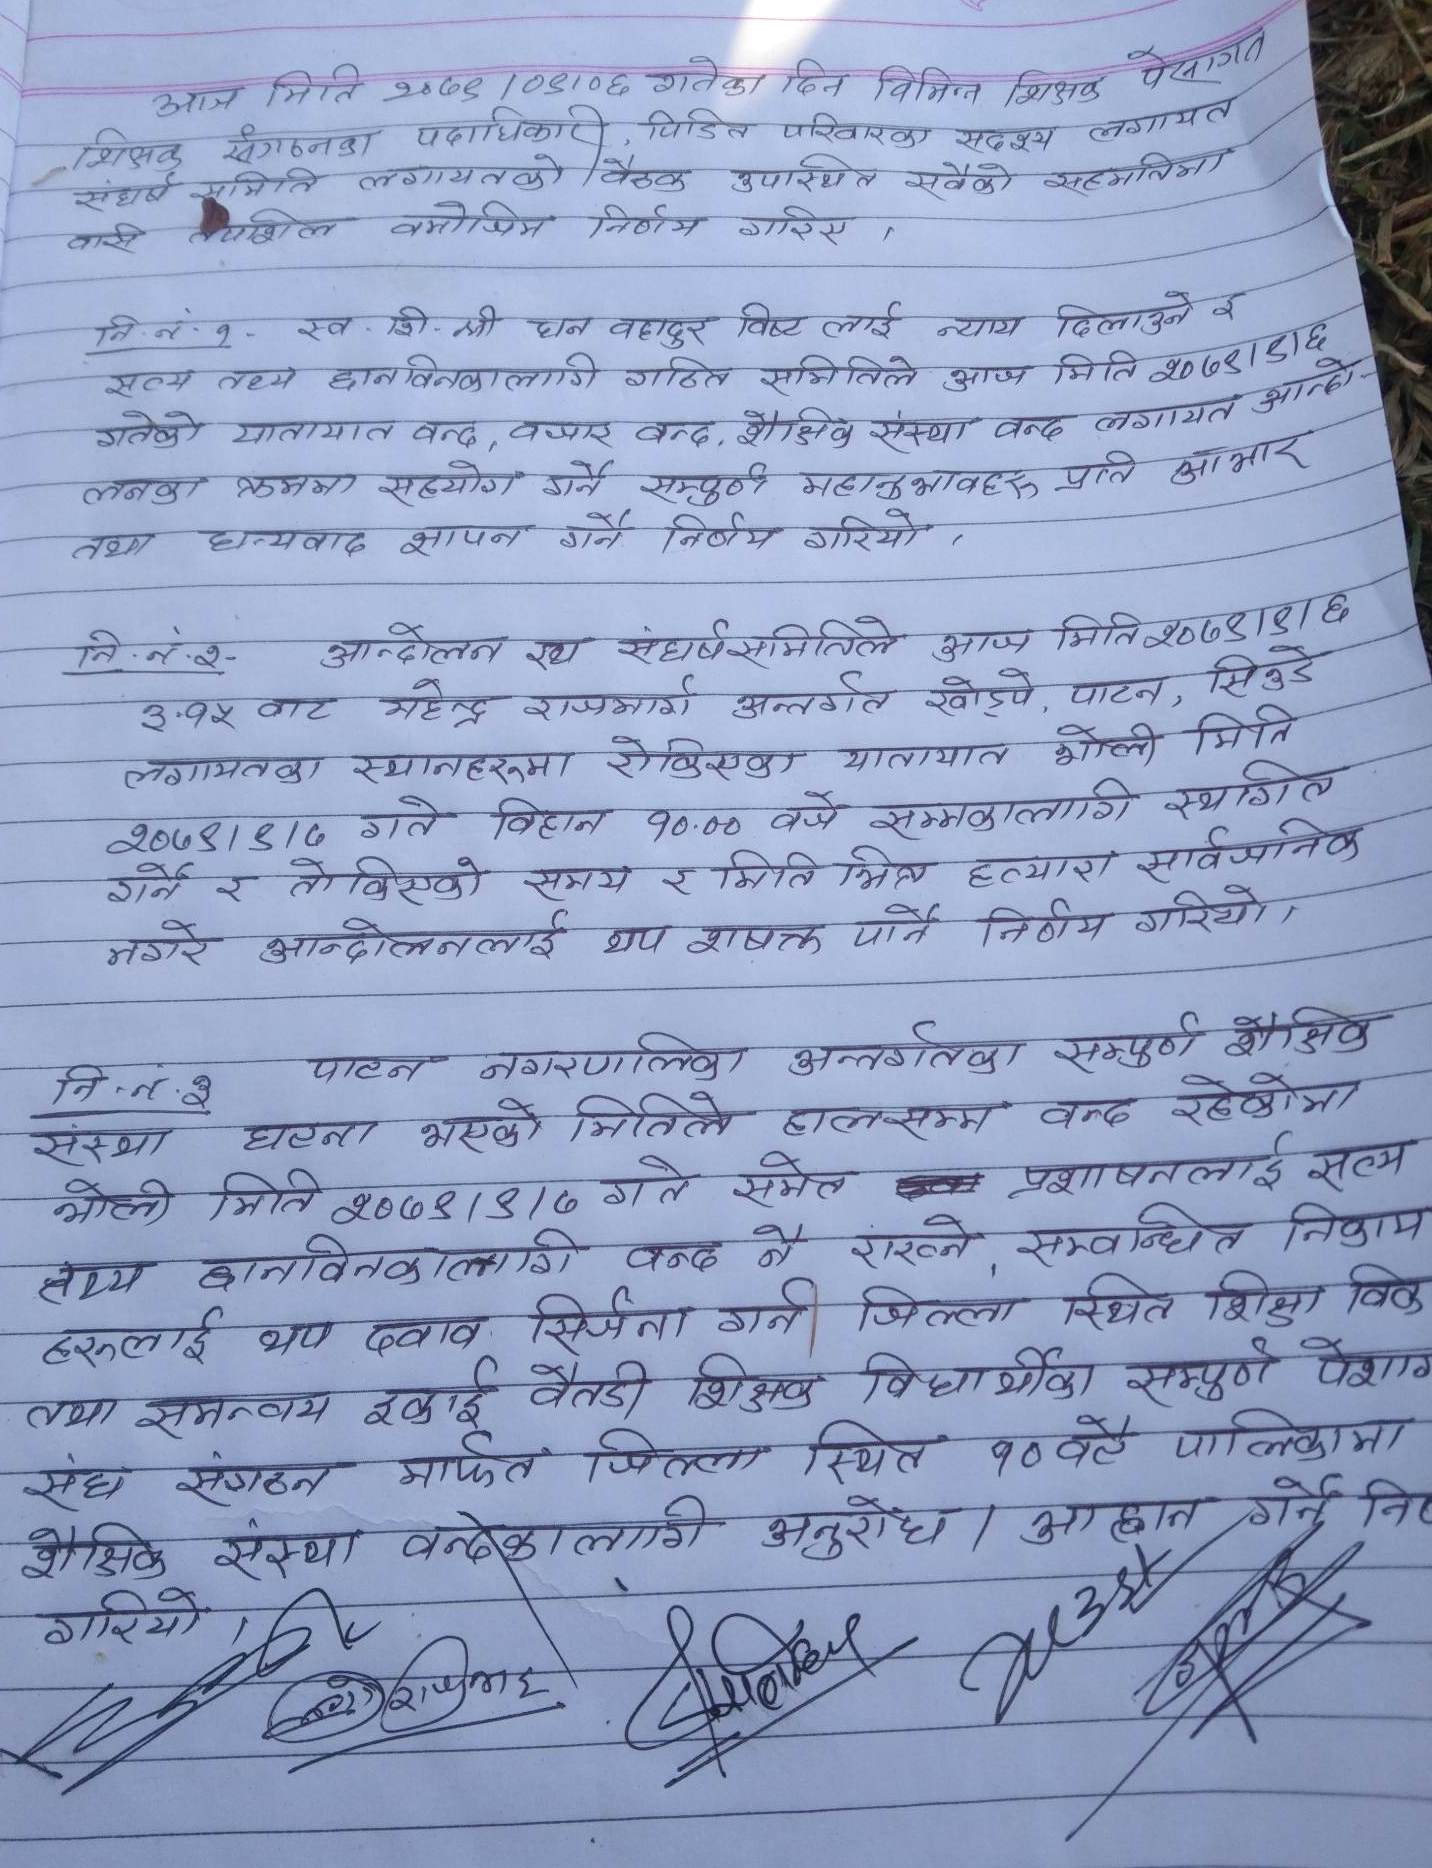 आज मिति २०७९/०९/०६ गतेका दिन विभिन्न शिक्षक पेसागत
शिक्षक संगठनका पदाधिकारी, पिडित परिवारका सदश्य लगायत
संघर्ष समिति लगायतको बैठक उपस्थित सवैको सहमतिमा
वसी तपशिल वमोजिम निर्णय गरिए ।
नि.नं.१- स्व. शि. श्री धन वहादुर विष्ट लाई न्याय दिलाउने र
सत्य तथ्य छानविनकालागि गठित समितिले आज मिति २०७९।९।६
गतेको यातायात वन्द, वजार वन्द, शैक्षिक संस्था वन्द लगायत आन्दो-
लनका क्रममा सहयोग गर्ने सम्पुर्ण महानुभावहरु प्रति आभार
तथा धन्यवाद ज्ञापन गर्ने निर्णय गरियो ।
नि.नं.२- आन्दोलन संघर्षसमितिले आज मिति २०७९।९।६
३.१५ वाट महेन्द्र राजमार्ग अन्तर्गत खोड्पे, पाटन,
लगायतका स्थानहरुमा रोकिएका यातायात भोली मिति
२०७९।९।७ गते विहान १०.०० वजे सम्मकालागि स्थगित
गर्ने र तोकिएको समय र मिति भित्र हत्यारा सार्वजनिक
नगरे आन्दोलनलाई थप शषक्त पार्ने निर्णय गरियो ।
नि.नं.३ पाटन नगरपालिका अन्तर्गतका सम्पुर्ण शैक्षिक
संस्था घटना भएको मितिले हालसम्म वन्द रहेकोमा
भोली मिति २०७९।९।७ गते समेत प्रशाषनलाई सत्य
तथ्य छानविनकालागि वन्द नै राख्ने, सम्वन्धित निकाय
हरुलाई थप दवाव सिर्जना गर्न जिल्ला स्थित शिक्षा विक
तथा समन्वय इकाई वैतडी शिक्षक विद्यार्थीका सम्पुर्ण पेशाग
संघ संगठन मार्फत जिल्ला स्थित १० वटै पालिकामा
शैक्षिक संस्था वन्देकालागी अनुरोध । आह्वान गर्ने निर्ण
गरियो ।